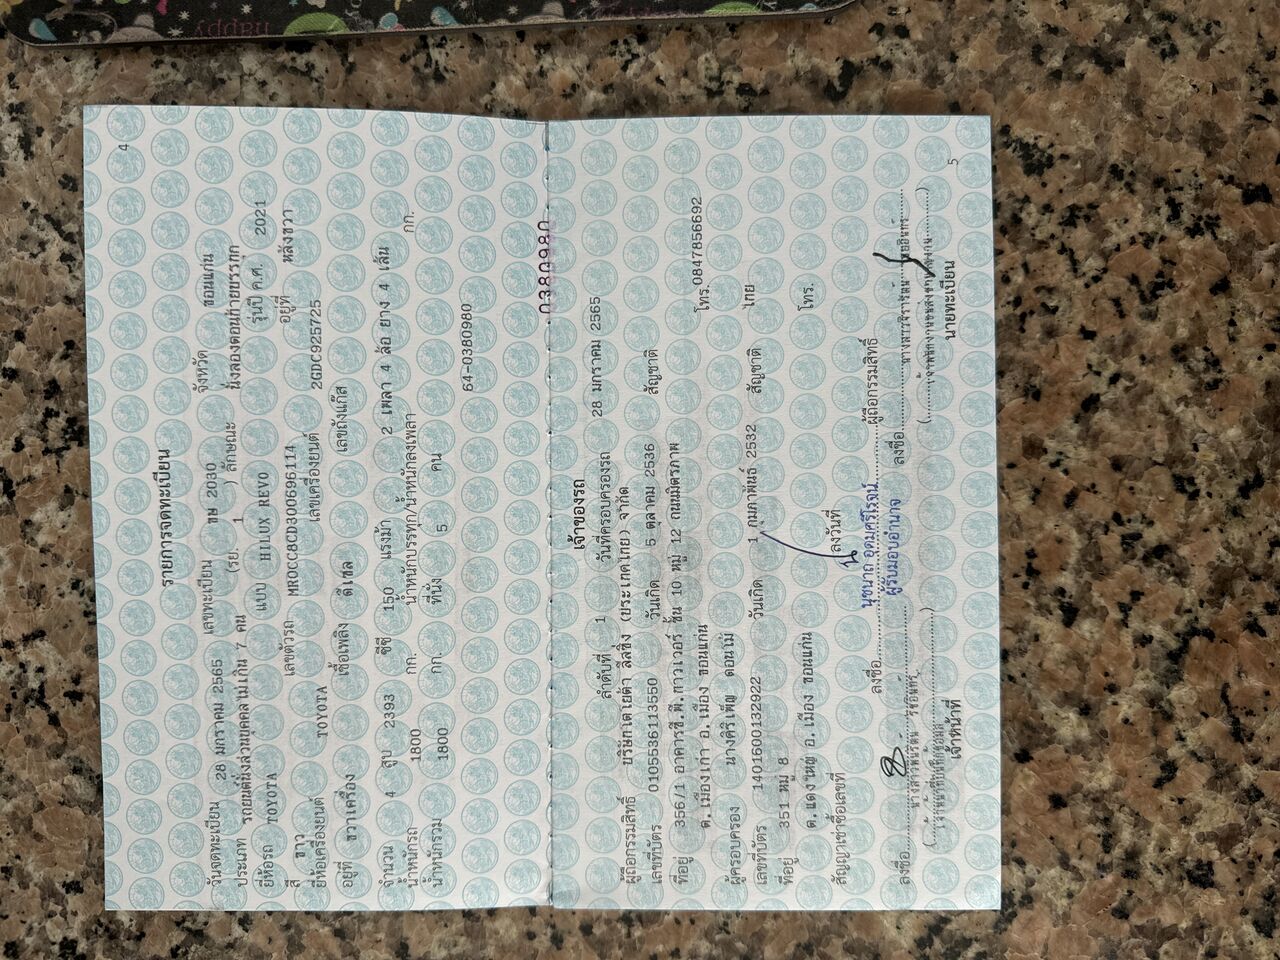 4
รายการจดทะเบียน
วันจดทะเบียน 28 มกราคม 2565 เลขทะเบียน ขม 2030 จังหวัด ขอนแก่น
ประเภท รถยนต์นั่งส่วนบุคคลไม่เกิน 7 คน (รย. 1 ) ลักษณะ นั่งสองตอนท้ายบรรทุก
ยี่ห้อรถ TOYOTA แบบ HILUX REVO รุ่นปี ค.ศ. 2021
สี ขาว เลขตัวรถ MR0CC8CD300696114 อยู่ที่ หลังขวา
ยี่ห้อเครื่องยนต์ TOYOTA เลขเครื่องยนต์ 2GDC925725
อยู่ที่ ขวาเครื่อง เชื้อเพลิง ดีเซล เลขถังแก๊ส
จำนวน 4 สูบ 2393 ซีซี 150 แรงม้า 2 เพลา 4 ล้อ ยาง 4 เส้น
น้ำหนักรถ 1800 กก. น้ำหนักบรรทุก/น้ำหนักลงเพลา กก.
น้ำหนักรวม 1800 กก. ที่นั่ง 5 คน
64-0380980
0380980
เจ้าของรถ
ลำดับที่ 1 วันที่ครอบครองรถ 28 มกราคม 2565
ผู้ถือกรรมสิทธิ์ บริษัทโตโยต้า ลีสซิ่ง (ประเทศไทย) จำกัด
เลขที่บัตร 0105536113550 วันเกิด 5 ตุลาคม 2536 สัญชาติ
ที่อยู่ 356/1 อาคารซี.พี.ทาวเวอร์ ชั้น 10 หมู่ 12 ถนนมิตรภาพ
ต.เมืองเก่า อ.เมือง ขอนแก่น โทร. 0847856692
ผู้ครอบครอง นางศิริเพ็ญ ดอนาม
เลขที่บัตร 1401600132922 วันเกิด 1 กุมภาพันธ์ 2532 สัญชาติ ไทย
ที่อยู่ 351 หมู่ 8
ต.แดงใหญ่ อ.เมือง ขอนแก่น โทร.
สัญญาเช่าซื้อเลขที่ ลงวันที่
ลงชื่อ ผู้ถือกรรมสิทธิ์
นุชนาถ อุดมศรีโรจน์
ผู้รับมอบอำนาจ
ลงชื่อ ลงชื่อ
เจ้าหน้าที่ นายทะเบียน
5